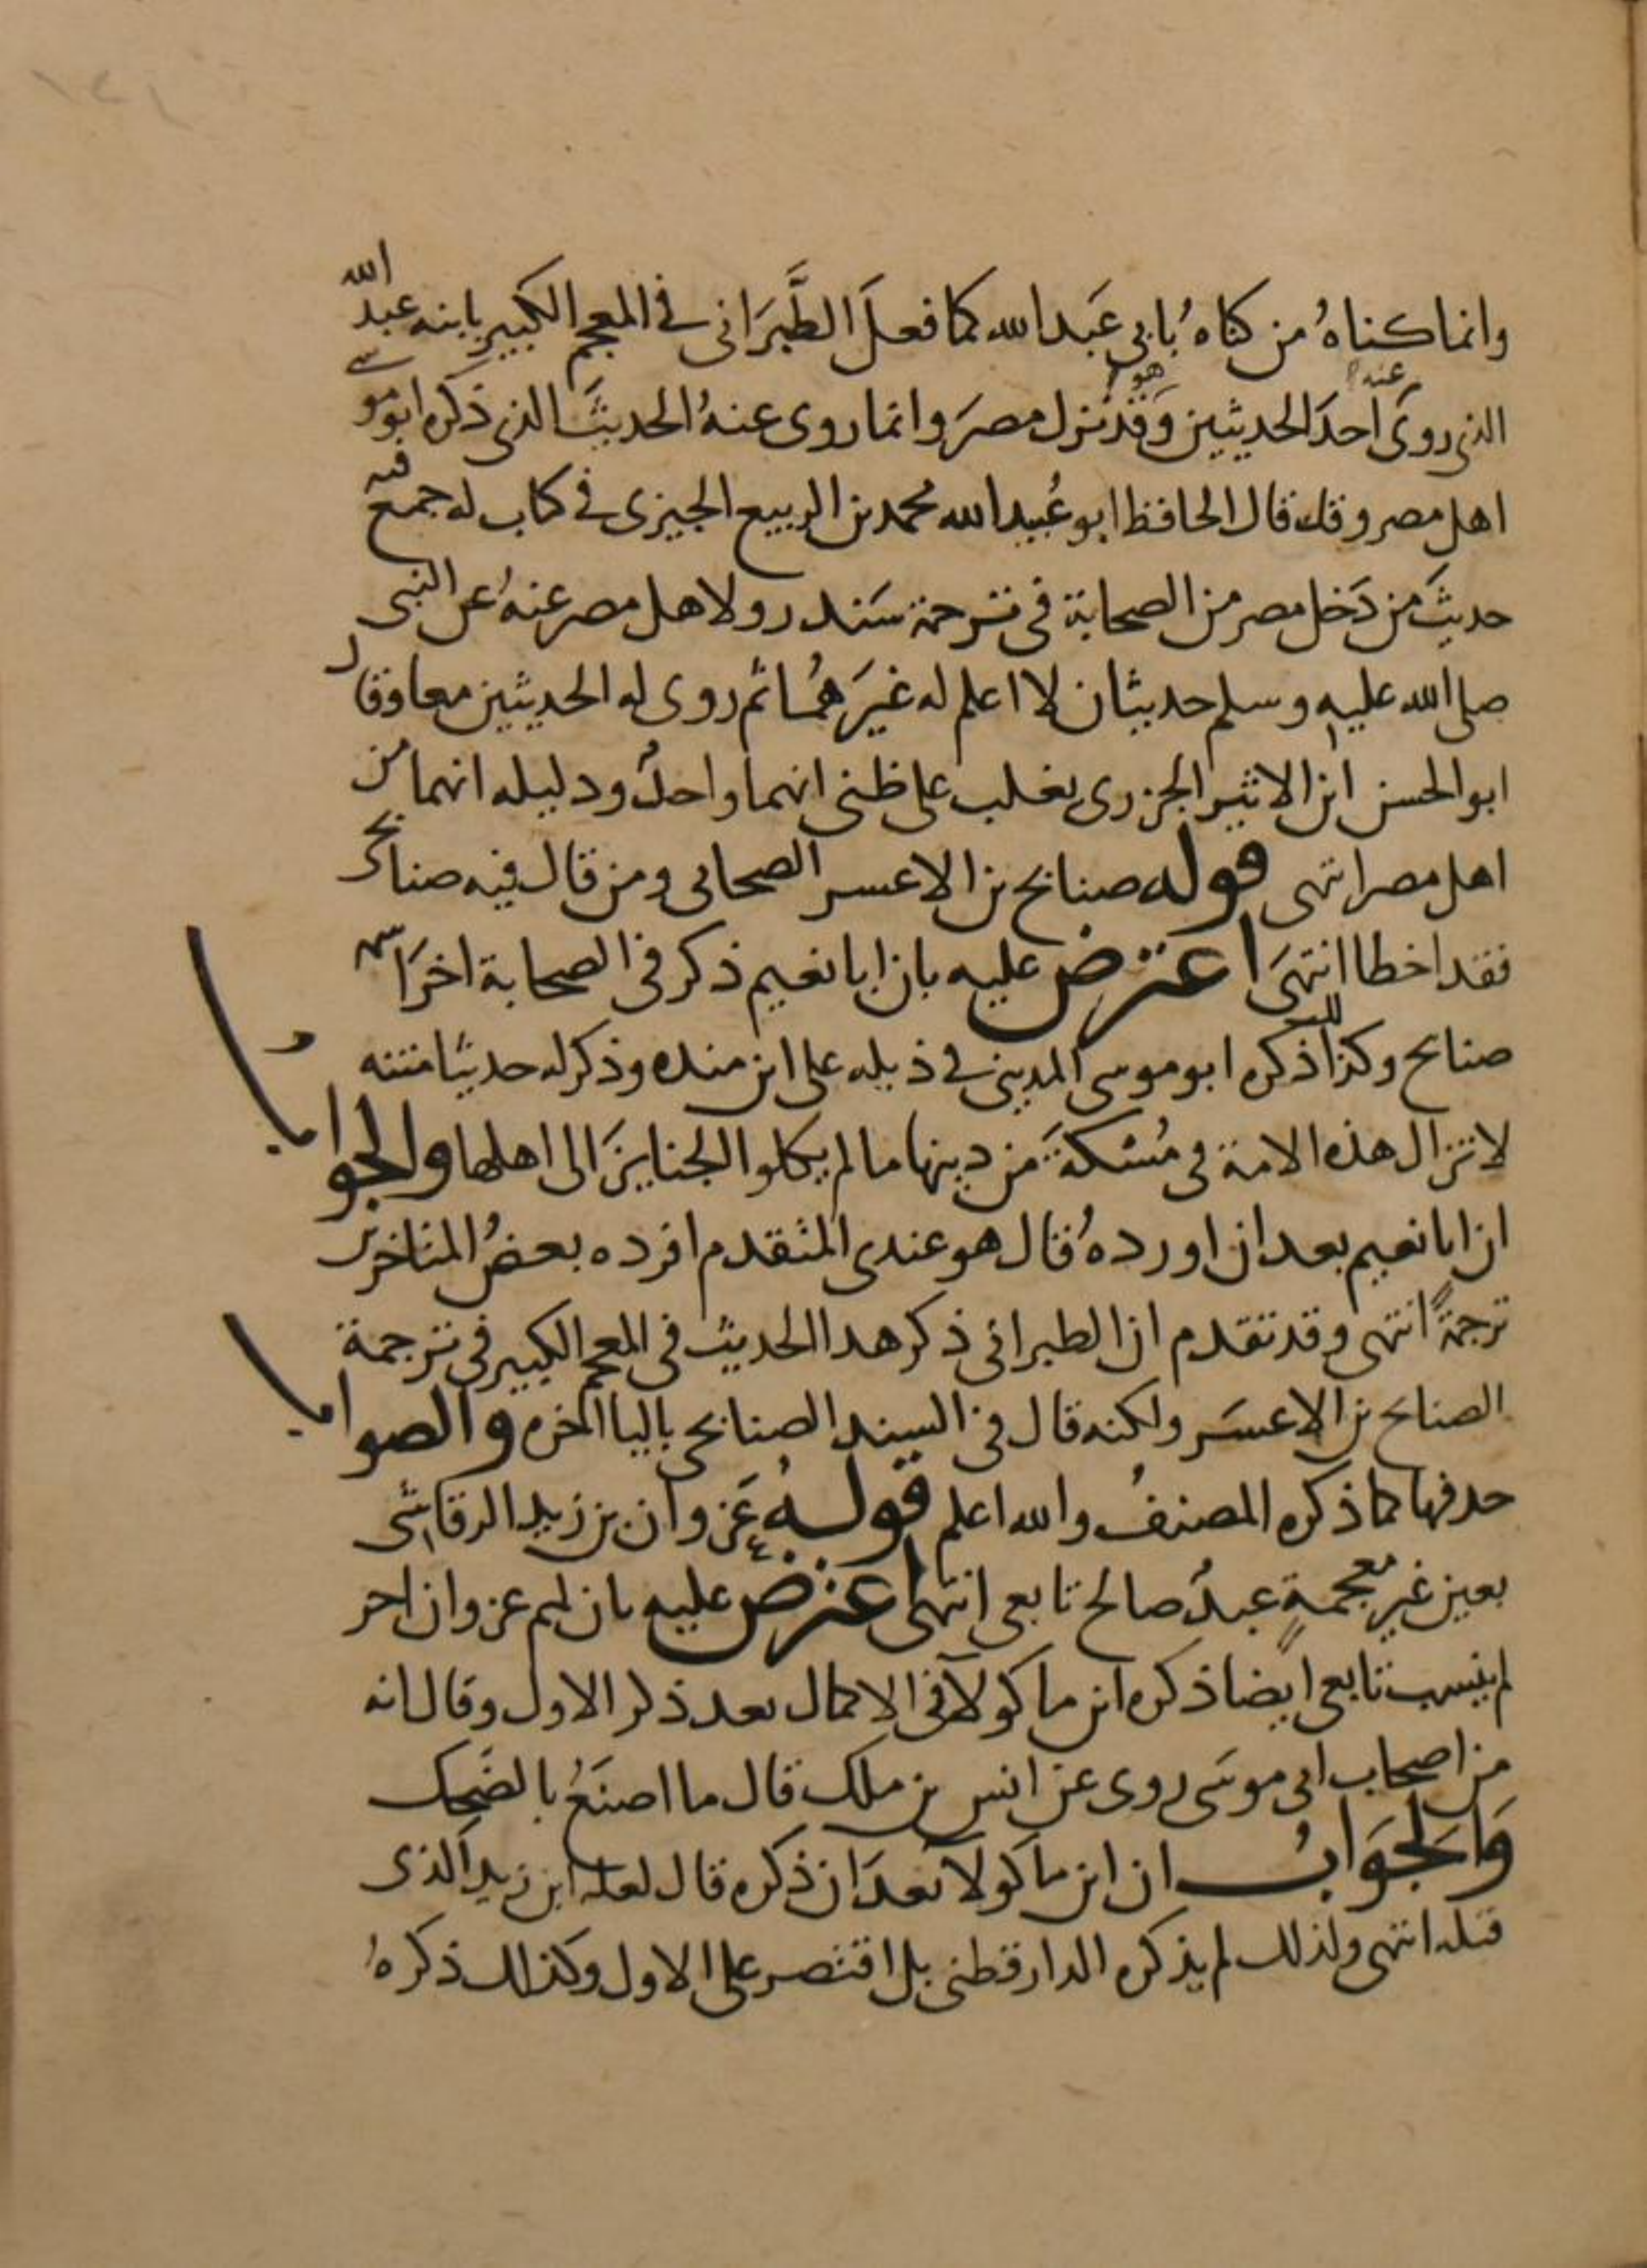 وانما كناهُ من كناهُ بابى عَبد الله كما فعلَ الطَّبَرَانى فى المعجم الكبير بابنه عبد الله
الذى روى عنه احدَ الحديثين وَقد هو نزل مصرَ وانما روى عنهُ الحديثَ الذى ذكره ابو موسى
اهل مصر وقد قال الحافظ ابو عُبيد الله محمد بن الربيع الجيزى فى كتاب له جمع فيه
حديثَ من دَخل مصر من الصحابة فى ترجمة سَندر ولاهل مصر عنهُ عن النبى
صلى الله عليه وسلم حديثان لا اعلم له غيرَهُما ثم روى له الحديثين معا وقال
ابو الحسن ابن الاثير الجزرى يغلب على ظنى انهما واحدٌ ودليله انهما من
اهل مصر انتهى قوله صنابح بن الاعسر الصحابى ومن قال فيه صنابحى
فقد اخطا انتهىَ اعترض عليه بان ابا نعيم ذكر فى الصحابة اخرَ اسمه
صنابح وكذا ذكره ابو موسى المدينى فى ذيله على ابن منده وذكر له حديثا متنه
لا تزال هذه الامة فى مُسْكةَ من دينها ما لم يكلوا الجنايزَ الى اهلها والجواب
ان ابا نعيم بعد ان اوردهُ قال هو عندى المتقدم افرده بعضُ المتاخرين
ترجمةً انتهى وقد تقدم ان الطبرانى ذكر هذا الحديث فى المعجم الكبير فى ترجمة
الصنابح بن الاعسَر ولكنه قال فى السند الصنابحى باليا اخره والصواب
حذفها كما ذكره المصنفُ والله اعلم قولهُ عَزوان بن زيد الرقاشى
بعين غير معجمةٍ عبدٌ صالح تابعى انتهى اعترض عليه بان لهم عزوان اخر
لم ينسب تابعى ايضًا ذكره ابن ماكولا فى الاكمال بعد ذكر الاول وقال انه
من اصحاب ابى موسَى روى عن انس بن ملك قال ما اصنَعُ بالضَحِك
وَالجَوَابُ ان ابن ماكولا بعدَ ان ذكره قال لعله ابن زيد الذى
قبله انتهى ولذلك لم يذكره الدارقطنى بل اقتصر على الاول وكذلك ذكرهُ